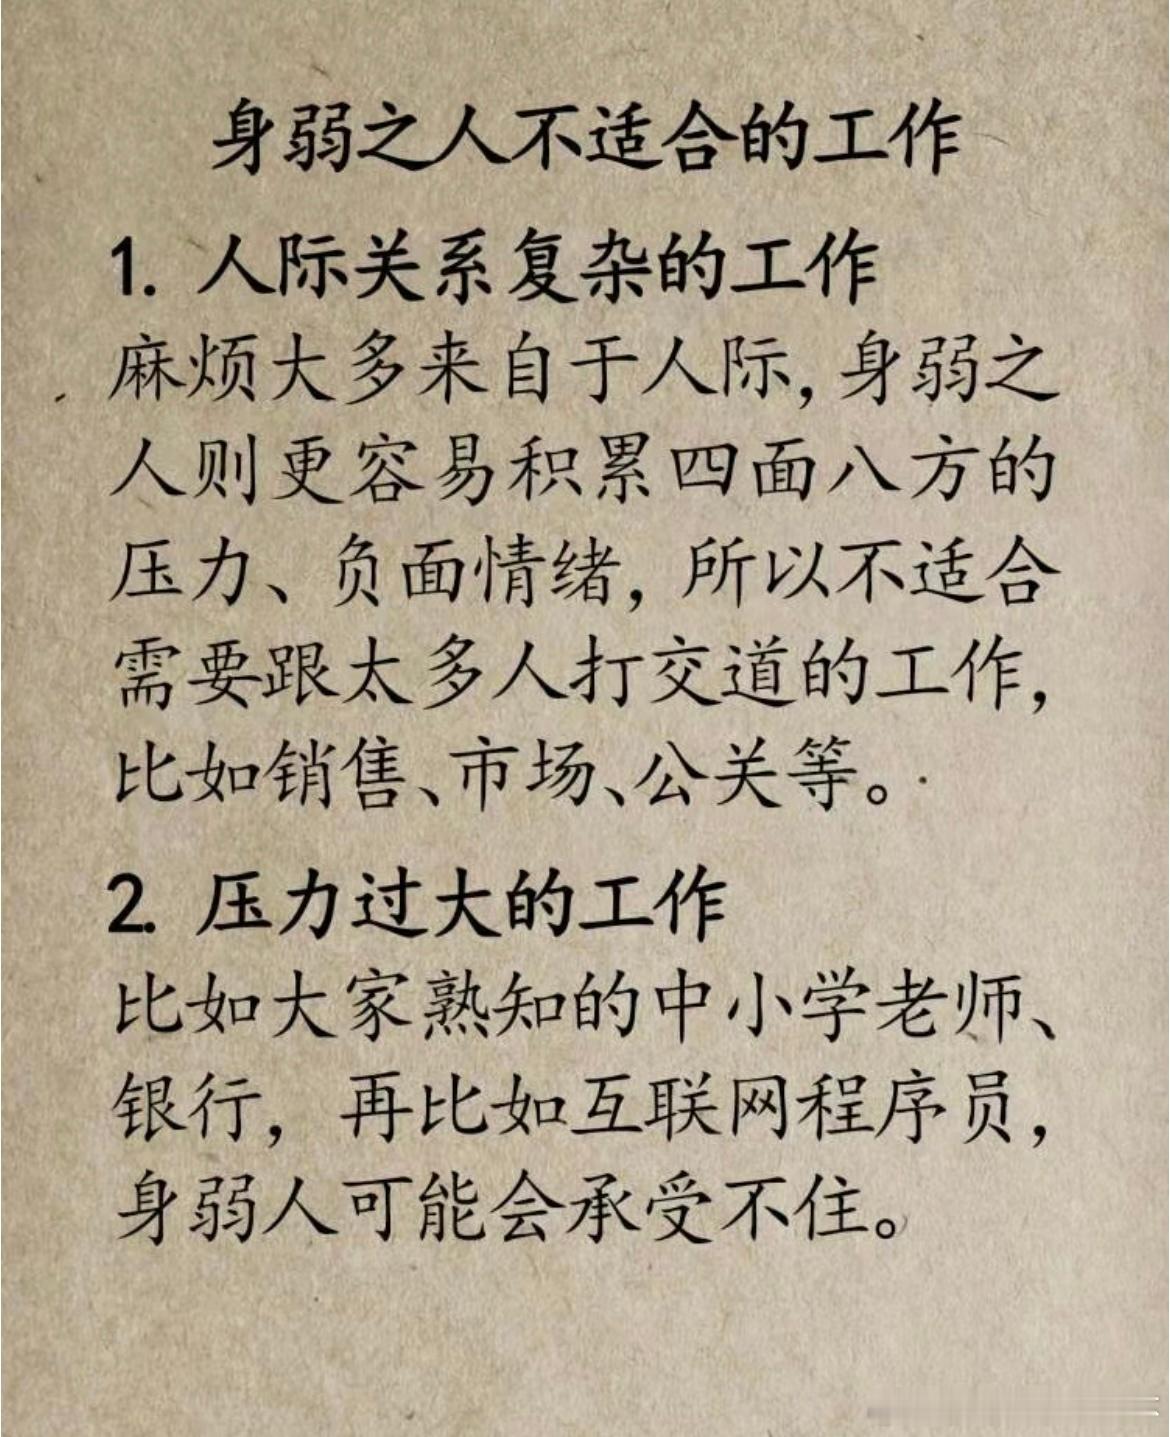 身弱之人不适合的工作
1. 人际关系复杂的工作
麻烦大多来自于人际,身弱之
人则更容易积累四面八方的
压力、负面情绪，所以不适合
需要跟太多人打交道的工作，
比如销售、市场、公关等。
2. 压力过大的工作
比如大家熟知的中小学老师、
银行，再比如互联网程序员，
身弱人可能会承受不住。